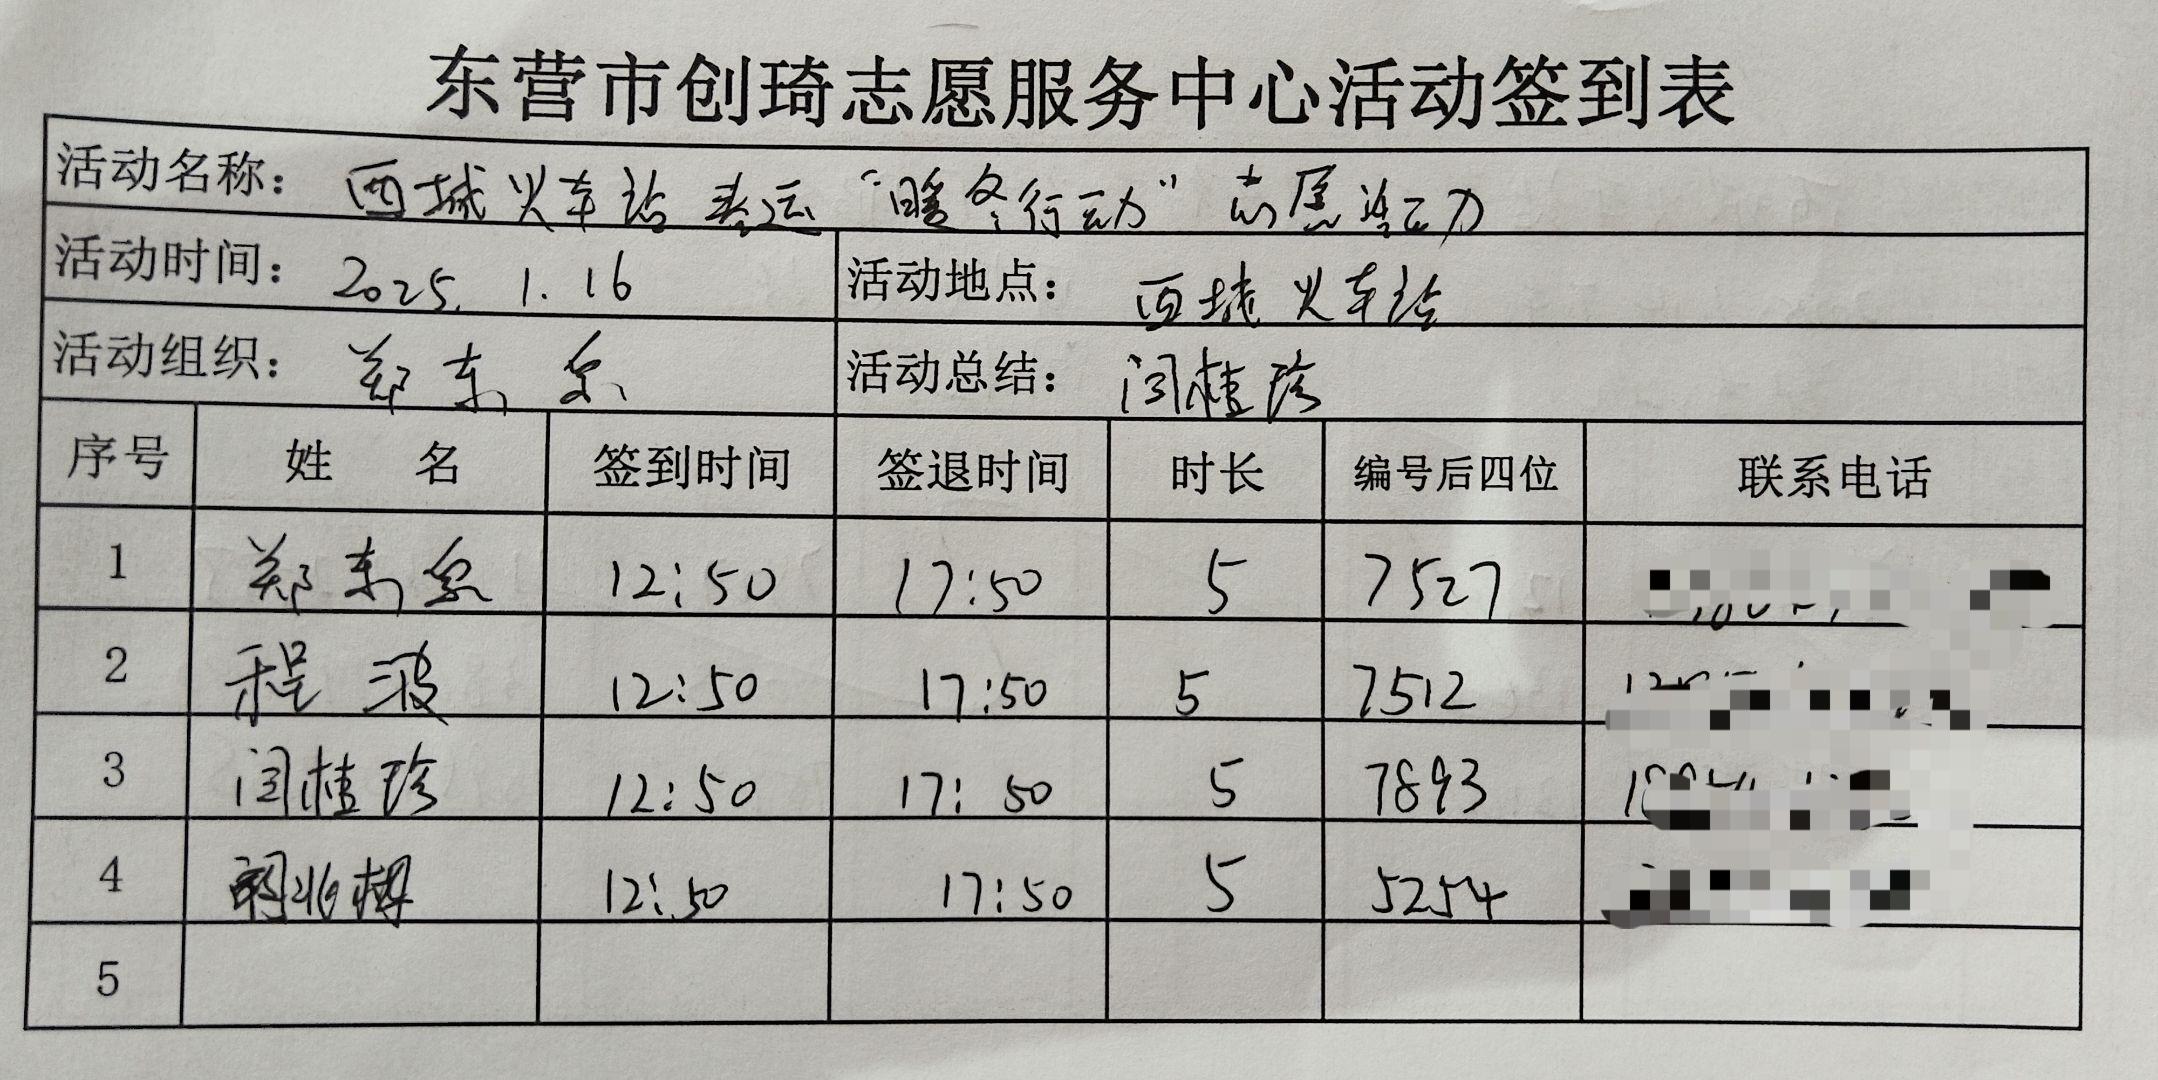 东营市创琦志愿服务中心活动签到表
活动名称: 西城火车站春运“暖冬行动”志愿活动
活动时间: 2025.1.16 活动地点: 西城火车站
活动组织: 郑东 活动总结: 闫桂珍
序号 姓 名 签到时间 签退时间 时长 编号后四位 联系电话
1 郑东 12:50 17:50 5 7527
2 程波 12:50 17:50 5 7512
3 闫桂珍 12:50 17:50 5 7893
4 12:50 17:50 5 5254
5